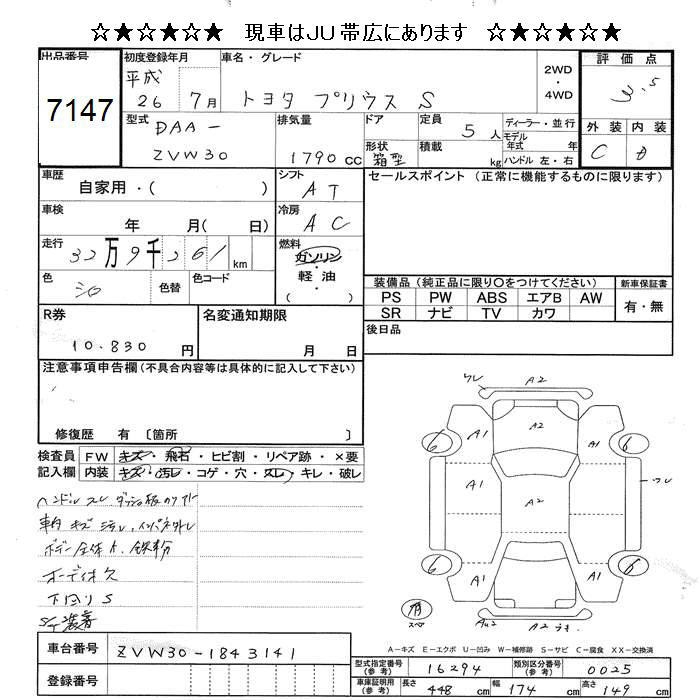 ☆★☆★☆★ 現車はJU帯広にあります ☆★☆★☆★
出品番号 7147
初度登録年月 平成 26 7月
車名・グレード トヨタ プリウス S
2WD・4WD
評価点 3.5
外装 内装
C D
型式 DAA-ZVW30
排気量 1790 cc
ドア 形状 箱型
定員 5人
積載 kg
ディーラー・並行
モデル年式 年
ハンドル 左・右
車歴 自家用・( )
シフト AT
セールスポイント (正常に機能するものに限ります)
車検 年 月( 日)
冷房 AC
走行 32万9千261 km
燃料 ガソリン・軽油 ( )
色 シロ 色替 色コード
装備品 (純正品に限り〇をつけてください)
新車保証書 有・無
PS PW ABS エアB AW
SR ナビ TV カワ
R券 10.830 円
名変通知期限 月 日
後日品
注意事項申告欄 (不具合内容等は具体的に記入して下さい)
修復歴 有 〔箇所 〕
検査員記入欄
FW キズ・飛石・ヒビ割・リペア跡・×要
内装 キズ・汚レ・コゲ・穴・スレ・キレ・破レ
ハンドルスレ ダッシュ板
車内キズ汚レ、インパネ
ボデー全体A、鉄粉
オーディオ欠
下回りS
装着
ワレ A2
A1 A2 A1
6 6
A1 A2 A1
ワレ
6 6
A1 A1
A2
有 スペア
A-キズ E-エクボ U-凹み W-補修跡 S-サビ C-腐食 XX-交換済
車台番号 ZVW30-1843141
登録番号
型式指定番号(参考) 16294
類別区分番号(参考) 0025
車庫証明用(参考) 長さ 448 cm 幅 174 cm 高さ 149 cm